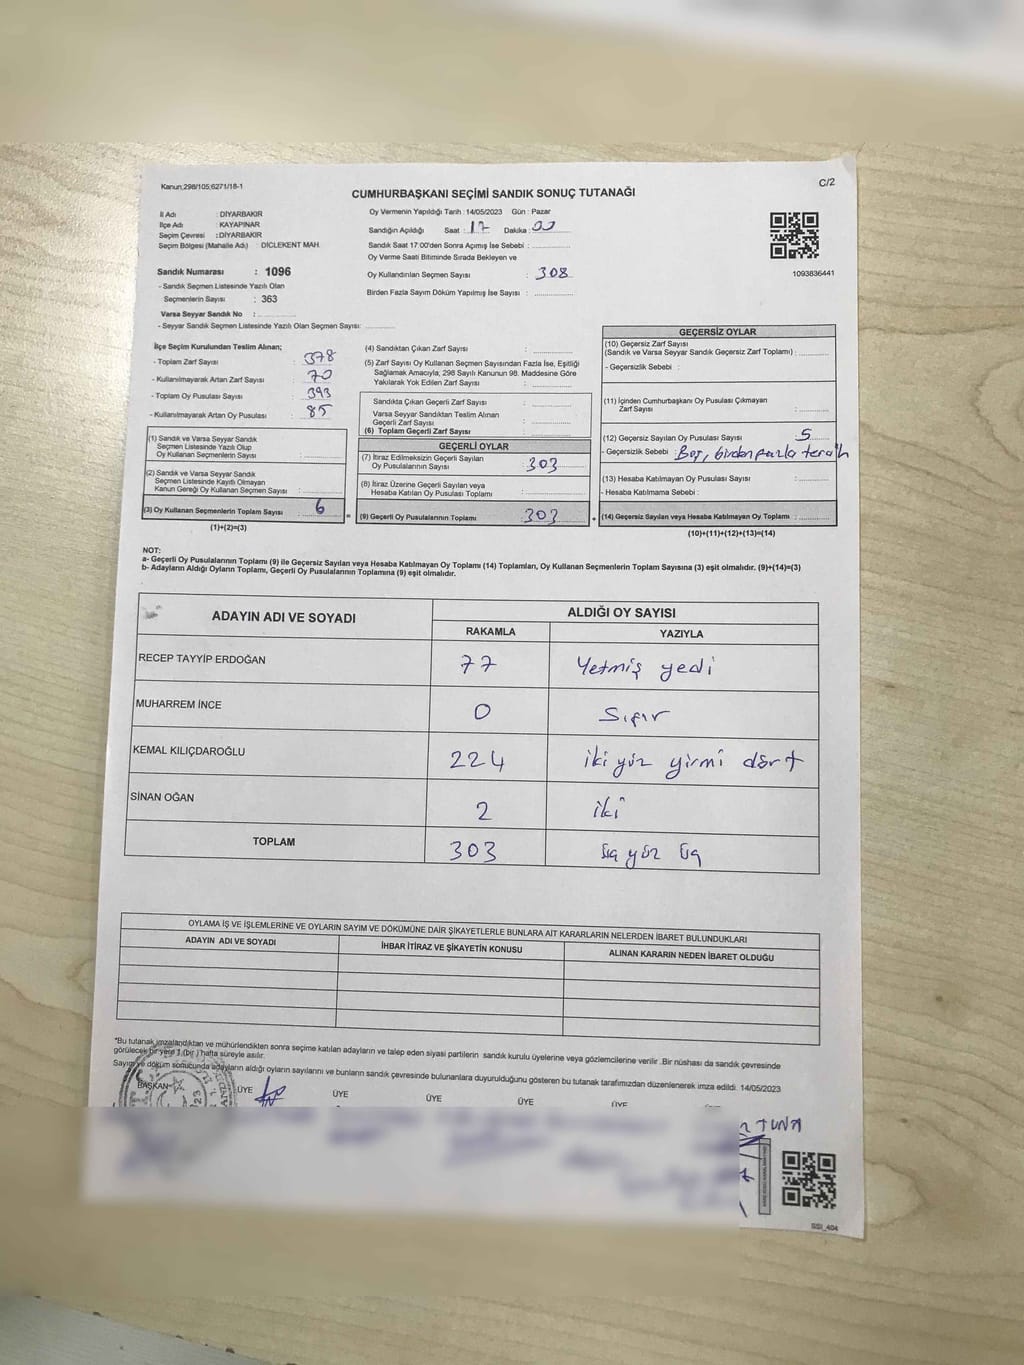 Kanun;298/105;6271/18-1
C/2
CUMHURBAŞKANI SEÇİMİ SANDIK SONUÇ TUTANAĞI
İl Adı : DİYARBAKIR
İlçe Adı : KAYAPINAR
Seçim Çevresi : DİYARBAKIR
Seçim Bölgesi (Mahalle Adı) : DİCLEKENT MAH.
Sandık Numarası : 1096
- Sandık Seçmen Listesinde Yazılı Olan
Seçmenlerin Sayısı : 363
Varsa Seyyar Sandık No :
- Seyyar Sandık Seçmen Listesinde Yazılı Olan Seçmen Sayısı:
Oy Vermenin Yapıldığı Tarih : 14/05/2023 Gün : Pazar
Sandığın Açıldığı Saat : 17 Dakika : 00
Sandık Saat 17:00'den Sonra Açımış İse Sebebi :
Oy Verme Saati Bitiminde Sırada Bekleyen ve
Oy Kullandırılan Seçmen Sayısı : 308
Birden Fazla Sayım Döküm Yapılmış İse Sayısı :
1093836441
İlçe Seçim Kurulundan Teslim Alınan;
- Toplam Zarf Sayısı : 378
- Kullanılmayarak Artan Zarf Sayısı : 70
- Toplam Oy Pusulası Sayısı : 393
- Kullanılmayarak Artan Oy Pusulası : 85
(1) Sandık ve Varsa Seyyar Sandık
Seçmen Listesinde Yazılı Olup
Oy Kullanan Seçmenlerin Sayısı :
(2) Sandık ve Varsa Seyyar Sandık
Seçmen Listesinde Kayıtlı Olmayan
Kanun Gereği Oy Kullanan Seçmen Sayısı :
(3) Oy Kullanan Seçmenlerin Toplam Sayısı : 6
(1)+(2)=(3)
(4) Sandıktan Çıkan Zarf Sayısı :
(5) Zarf Sayısı Oy Kullanan Seçmen Sayısından Fazla İse, Eşitliği
Sağlamak Amacıyla, 298 Sayılı Kanunun 98. Maddesine Göre
Yakılarak Yok Edilen Zarf Sayısı :
Sandıkta Çıkan Geçerli Zarf Sayısı :
Varsa Seyyar Sandıktan Teslim Alınan
Geçerli Zarf Sayısı :
(6) Toplam Geçerli Zarf Sayısı :
GEÇERLİ OYLAR
(7) İtiraz Edilmeksizin Geçerli Sayılan
Oy Pusulalarının Sayısı : 303
(8) İtiraz Üzerine Geçerli Sayılan veya
Hesaba Katılan Oy Pusulası Toplamı :
= (9) Geçerli Oy Pusulalarının Toplamı : 303
GEÇERSİZ OYLAR
(10) Geçersiz Zarf Sayısı
(Sandık ve Varsa Seyyar Sandık Geçersiz Zarf Toplamı) :
- Geçersizlik Sebebi :
(11) İçinden Cumhurbaşkanı Oy Pusulası Çıkmayan
Zarf Sayısı :
(12) Geçersiz Sayılan Oy Pusulası Sayısı : 5
- Geçersizlik Sebebi : Boş, birden fazla tercih
(13) Hesaba Katılmayan Oy Pusulası Sayısı :
- Hesaba Katılmama Sebebi :
+ (14) Geçersiz Sayılan veya Hesaba Katılmayan Oy Toplamı :
(10)+(11)+(12)+(13)=(14)
NOT:
a- Geçerli Oy Pusulalarının Toplamı (9) ile Geçersiz Sayılan veya Hesaba Katılmayan Oy Toplamı (14) Toplamları, Oy Kullanan Seçmenlerin Toplam Sayısına (3) eşit olmalıdır. (9)+(14)=(3)
b- Adayların Aldığı Oyların Toplamı, Geçerli Oy Pusulalarının Toplamına (9) eşit olmalıdır.
ADAYIN ADI VE SOYADI ALDIĞI OY SAYISI
RAKAMLA YAZIYLA
RECEP TAYYİP ERDOĞAN 77 Yetmiş yedi
MUHARREM İNCE 0 Sıfır
KEMAL KILIÇDAROĞLU 224 iki yüz yirmi dört
SİNAN OĞAN 2 iki
TOPLAM 303 üç yüz üç
OYLAMA İŞ VE İŞLEMLERİNE VE OYLARIN SAYIM VE DÖKÜMÜNE DAİR ŞİKAYETLERLE BUNLARA AİT KARARLARIN NELERDEN İBARET BULUNDUKLARI
ADAYIN ADI VE SOYADI İHBAR İTİRAZ VE ŞİKAYETİN KONUSU ALINAN KARARIN NEDEN İBARET OLDUĞU
*Bu tutanak imzalandıktan ve mühürlendikten sonra seçime katılan adayların ve talep eden siyasi partilerin sandık kurulu üyelerine veya gözlemcilerine verilir .Bir nüshası da sandık çevresinde
görülecek bir yere 1 (bir ) hafta süreyle asılır.
Sayım ve döküm sonucunda adayların aldığı oyların sayılarını ve bunların sandık çevresinde bulunanlara duyurulduğunu gösteren bu tutanak tarafımızdan düzenlenerek imza edildi. 14/05/2023
BAŞKAN ÜYE ÜYE ÜYE ÜYE ÜYE
TUNA
SSI_404